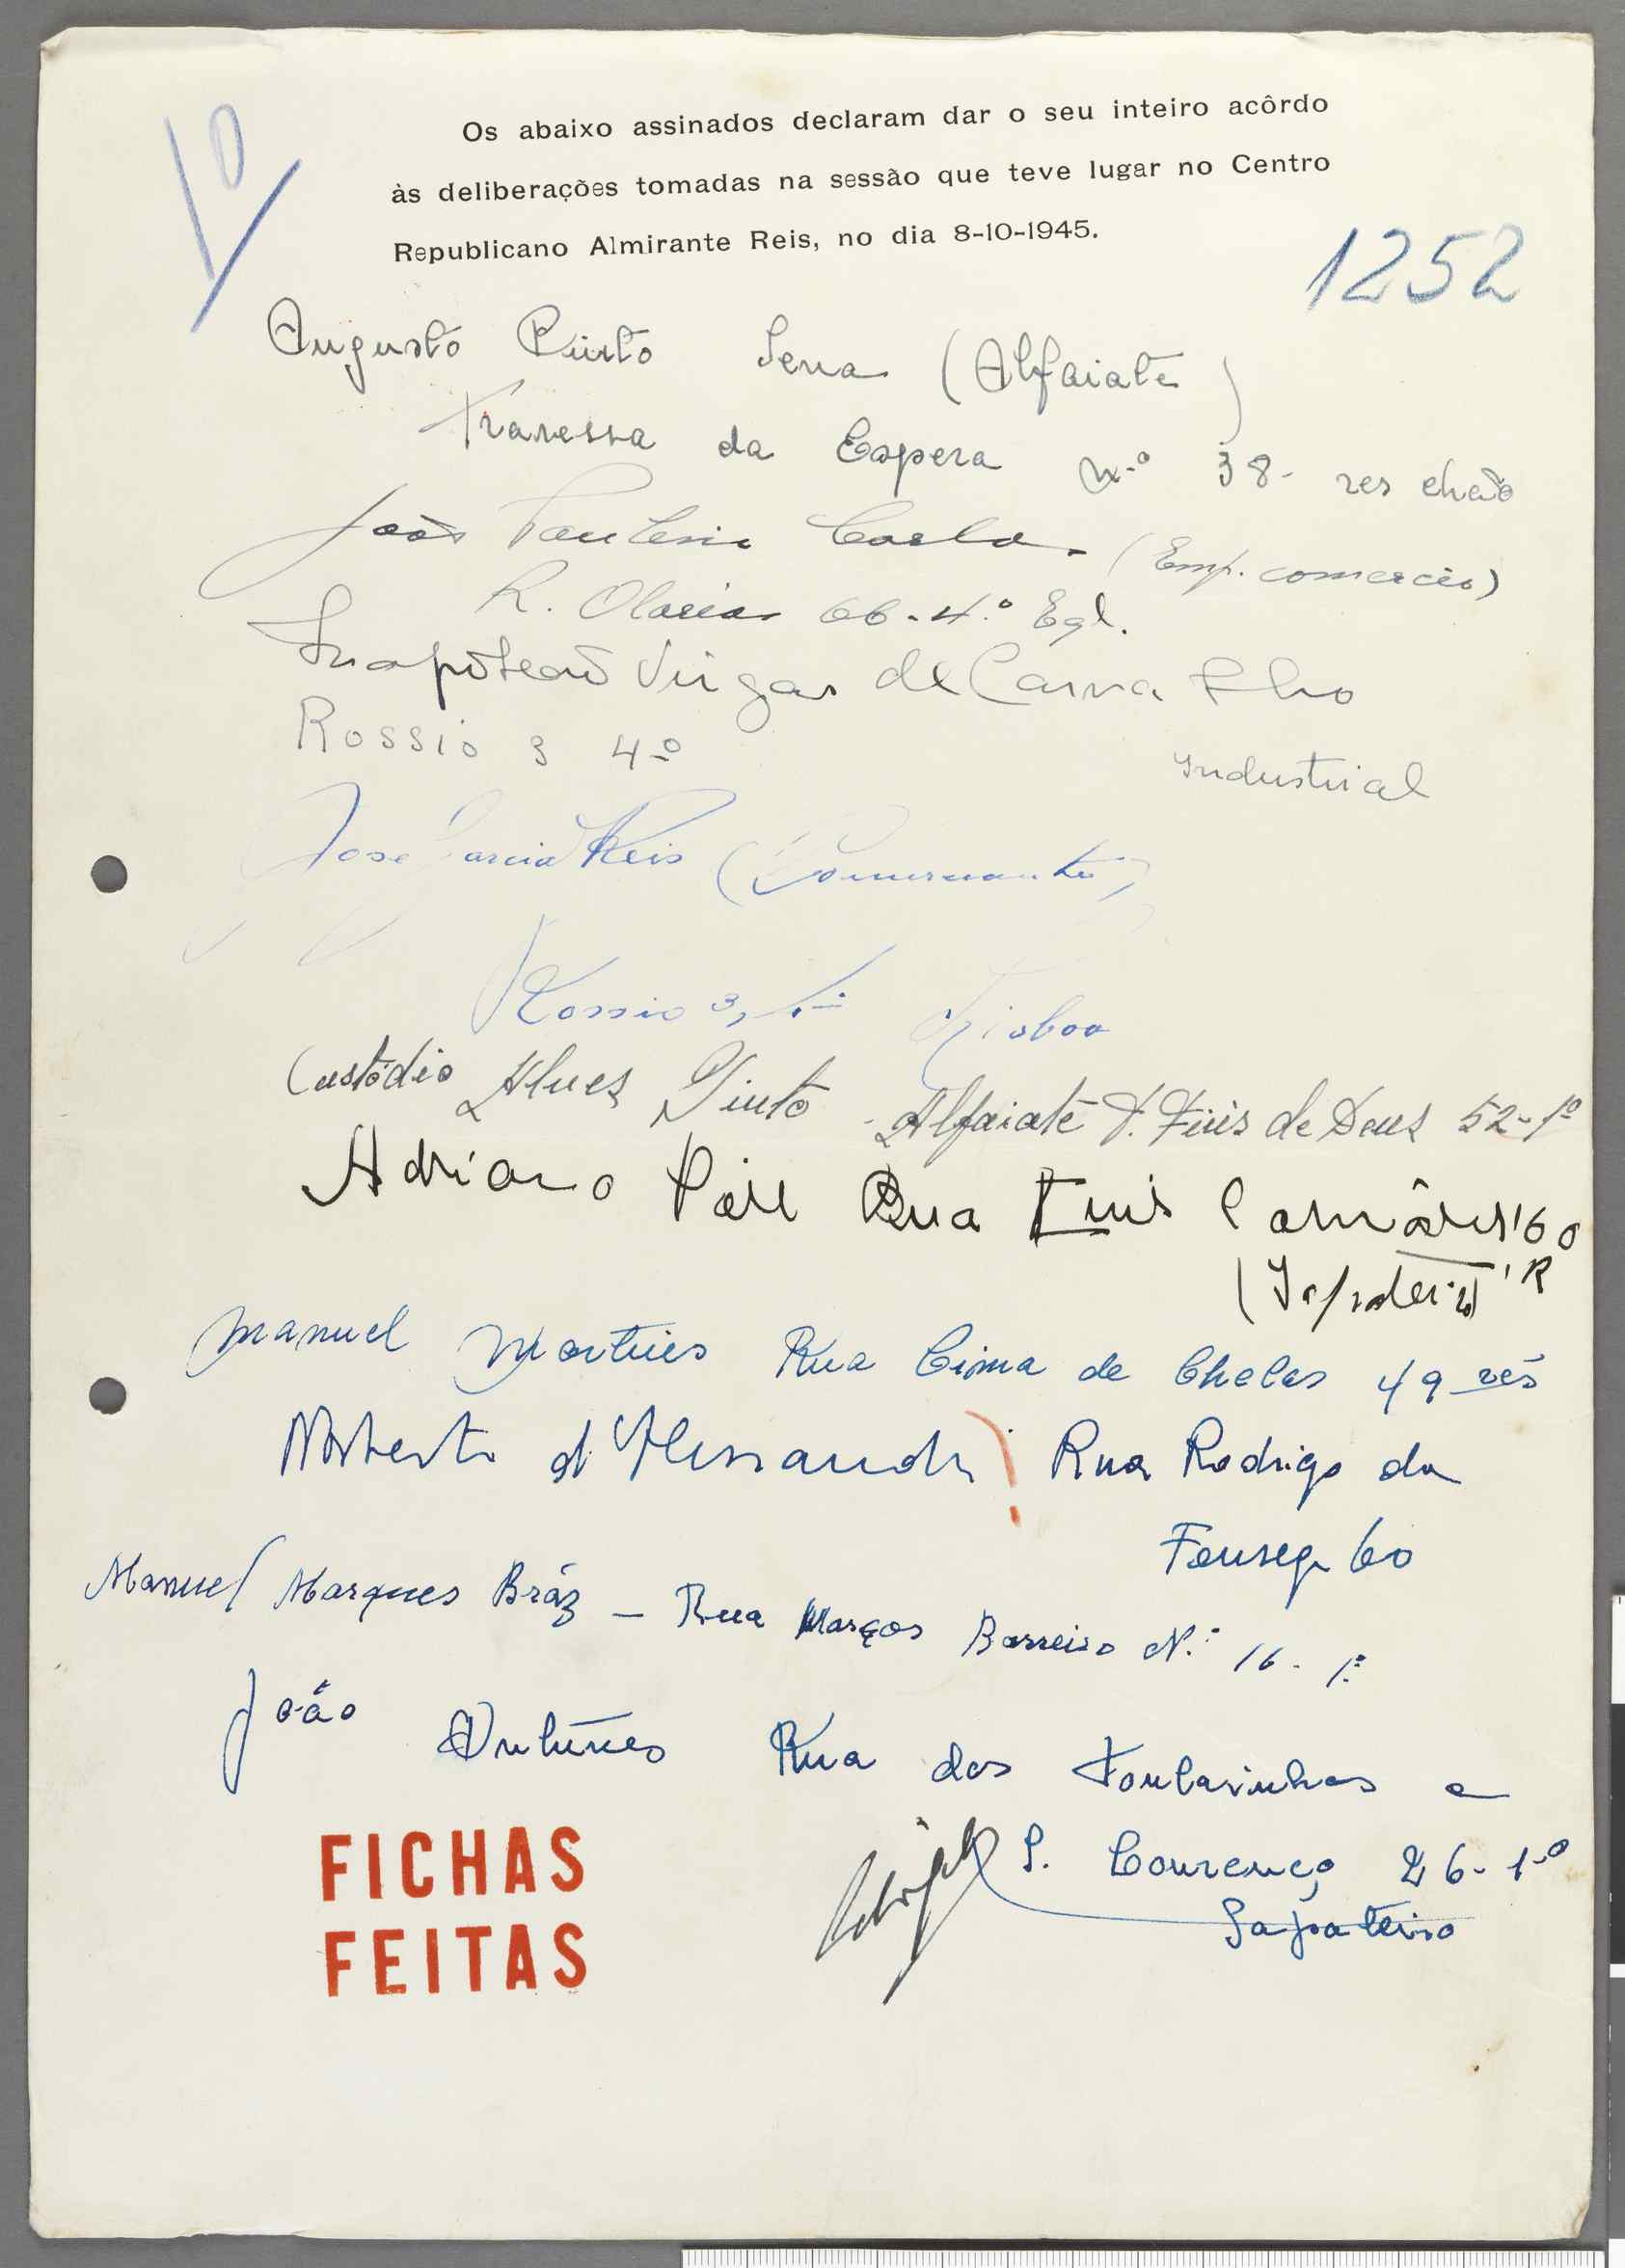 Os abaixo assinados declaram dar o seu inteiro acôrdo
às deliberações tomadas na sessão que teve lugar no Centro
Republicano Almirante Reis, no dia 8-10-1945.
1252
Augusto Pinto Sena (Alfaiate)
Travessa da Espera nº 38- res chão
João Coelho (Emp. comercio)
R. Olarias 66-4.º Eql.
Virgas de Carvalho
Rossio 3 4º Industrial
Jose Garcia Reis (Comerciante)
Rossio 3, Lisboa
Custódio Alves Pinto Alfaiate T. Fiéis de Deus 52-1º
Adriano Rua Luis Camões 160
R
Manuel Martins Rua Cima de Chelas 49 rés
Norberto d'Alessandri Rua Rodrigo da
Fonseca 60
Manuel Marques Bráz - Rua Março Barreiro N.º 16-1º
João Antunes Rua das Fontainhas a
S. Lourenço 26-1-º
Sapateiro
FICHAS
FEITAS